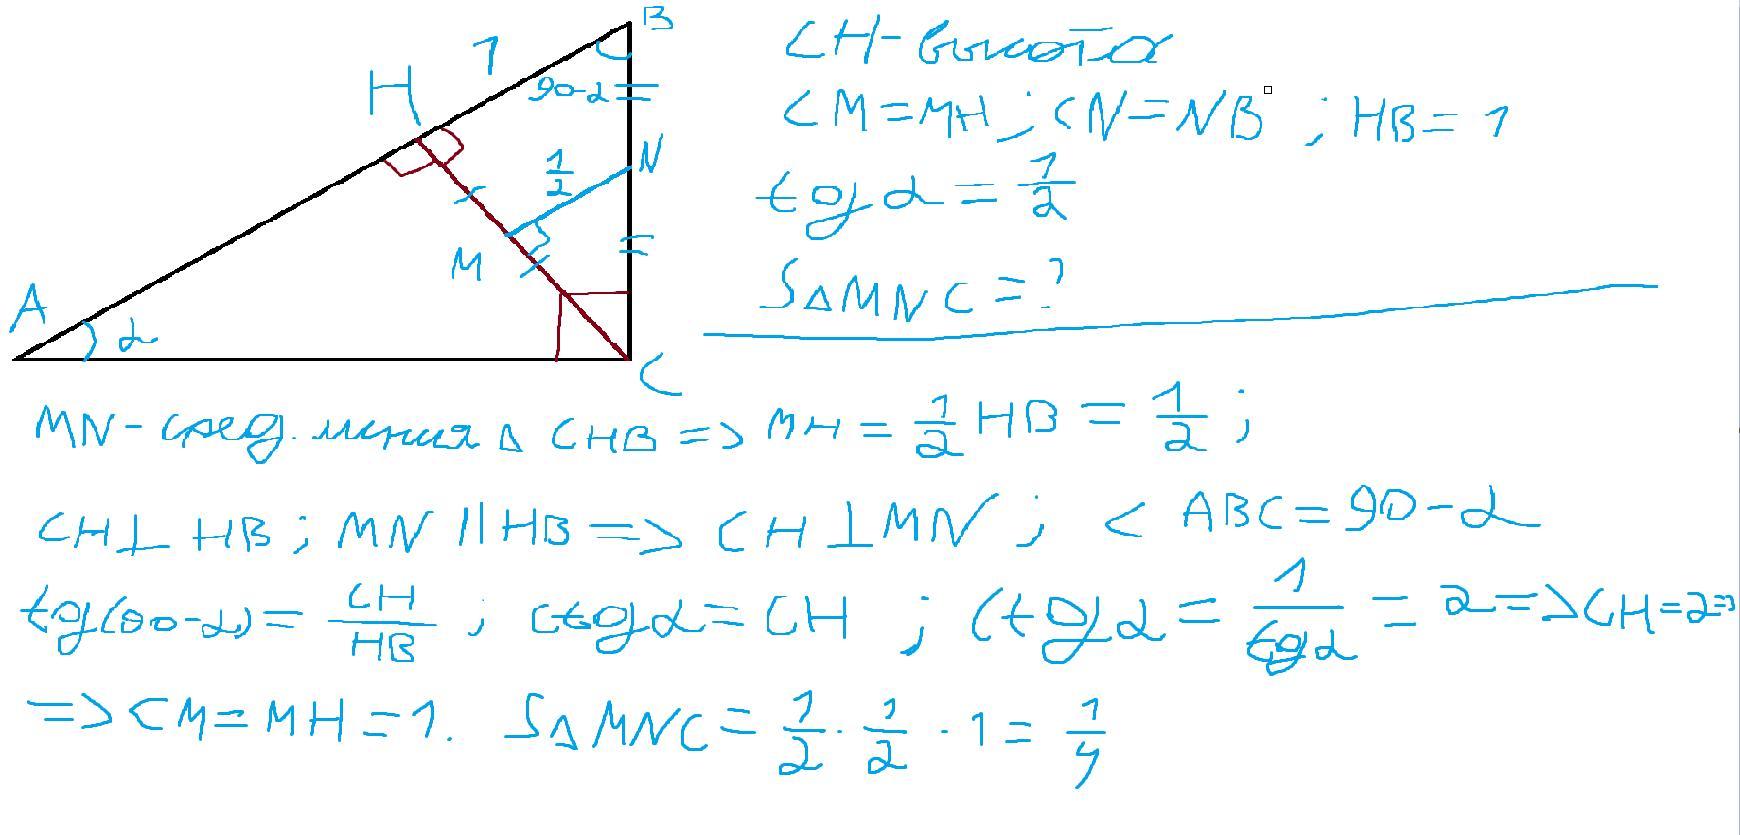 B
1
H
90-α
CH - высота
CM = MH ; CN = NB ; HB = 1
N
1/2
tg α = 1/2
M
S△MNC = ?
A
α
C
MN - сред. линия △ CHB => MH = 1/2 HB = 1/2 ;
CH ⊥ HB ; MN || HB => CH ⊥ MN ; < ABC = 90 - α
tg(90-α) = CH/HB ; ctg α = CH ; ctg α = 1/tg α = 2 => CH = 2 =>
=> CM = MH = 1. S△MNC = 1/2 · 1/2 · 1 = 1/4